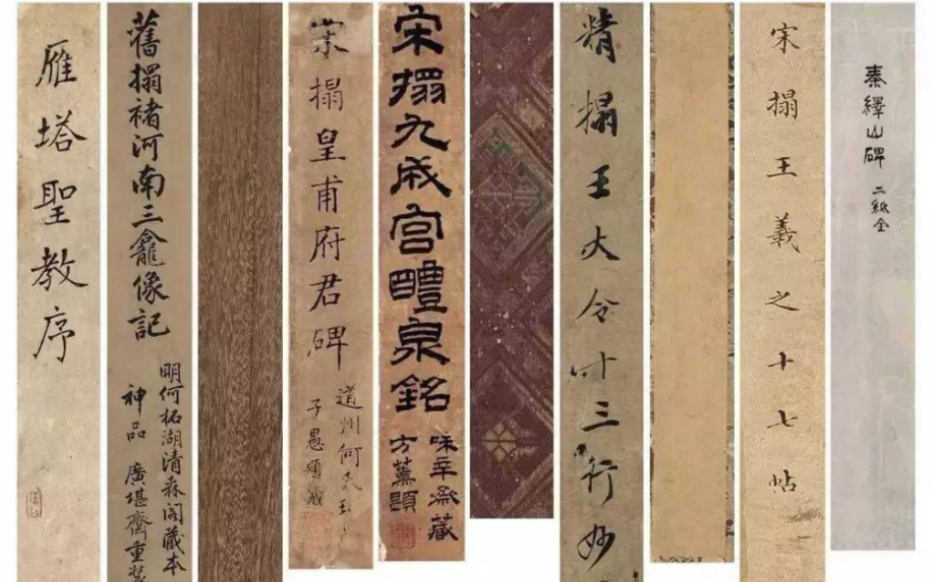 雁塔聖教序
舊搨褚河南三龕像記
明何柘湖清森閣藏本
神品 廣堪齋重裝
宋搨皇甫府君碑
道州何氏
宋搨九成宮醴泉銘
味辛齋藏
方薰題
精搨王大令十三行
宋搨王羲之十七帖
秦繹山碑 二紙全